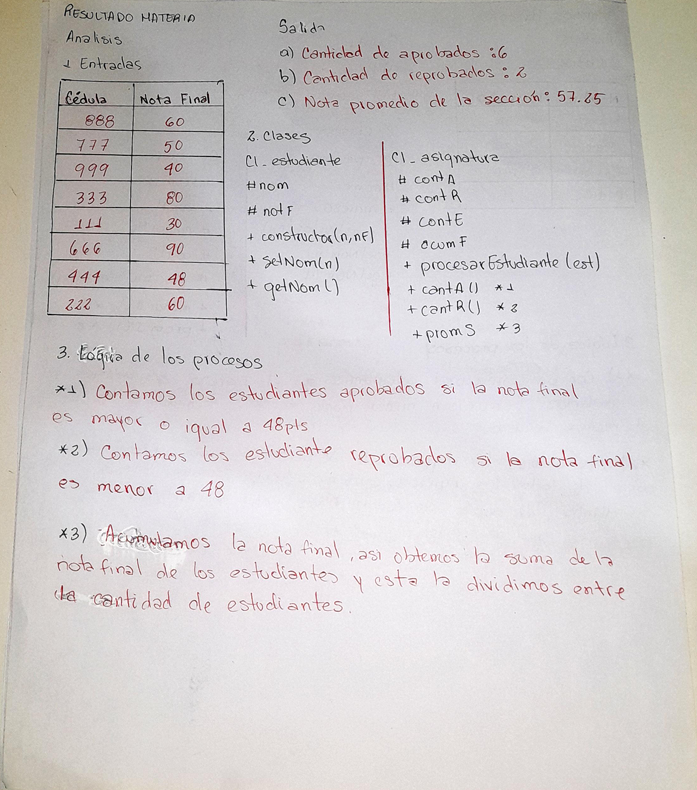 RESULTADO MATERIA
Analisis
1 Entradas
Cédula Nota Final
888 60
777 50
999 40
333 80
111 30
666 90
444 48
222 60
Salida
a) Cantidad de aprobados : 6
b) Cantidad de reprobados : 2
c) Nota promedio de la sección : 57.25
2. Clases
Cl_estudiante
#nom
# notF
+ constructor(n,nF)
+ setNom(n)
+ getNom()
Cl_asignatura
# contA
# contR
# contE
# acumF
+ procesarEstudiante(est)
+ cantA() *1
+ cantR() *2
+ promS *3
3. Lógica de los procesos
*1) Contamos los estudiantes aprobados si la nota final
es mayor o igual a 48pts
*2) Contamos los estudiante reprobados si la nota final
es menor a 48
*3) Acumulamos la nota final, asi obtemos la suma de la
nota final de los estudiantes y esta la dividimos entre
la cantidad de estudiantes.